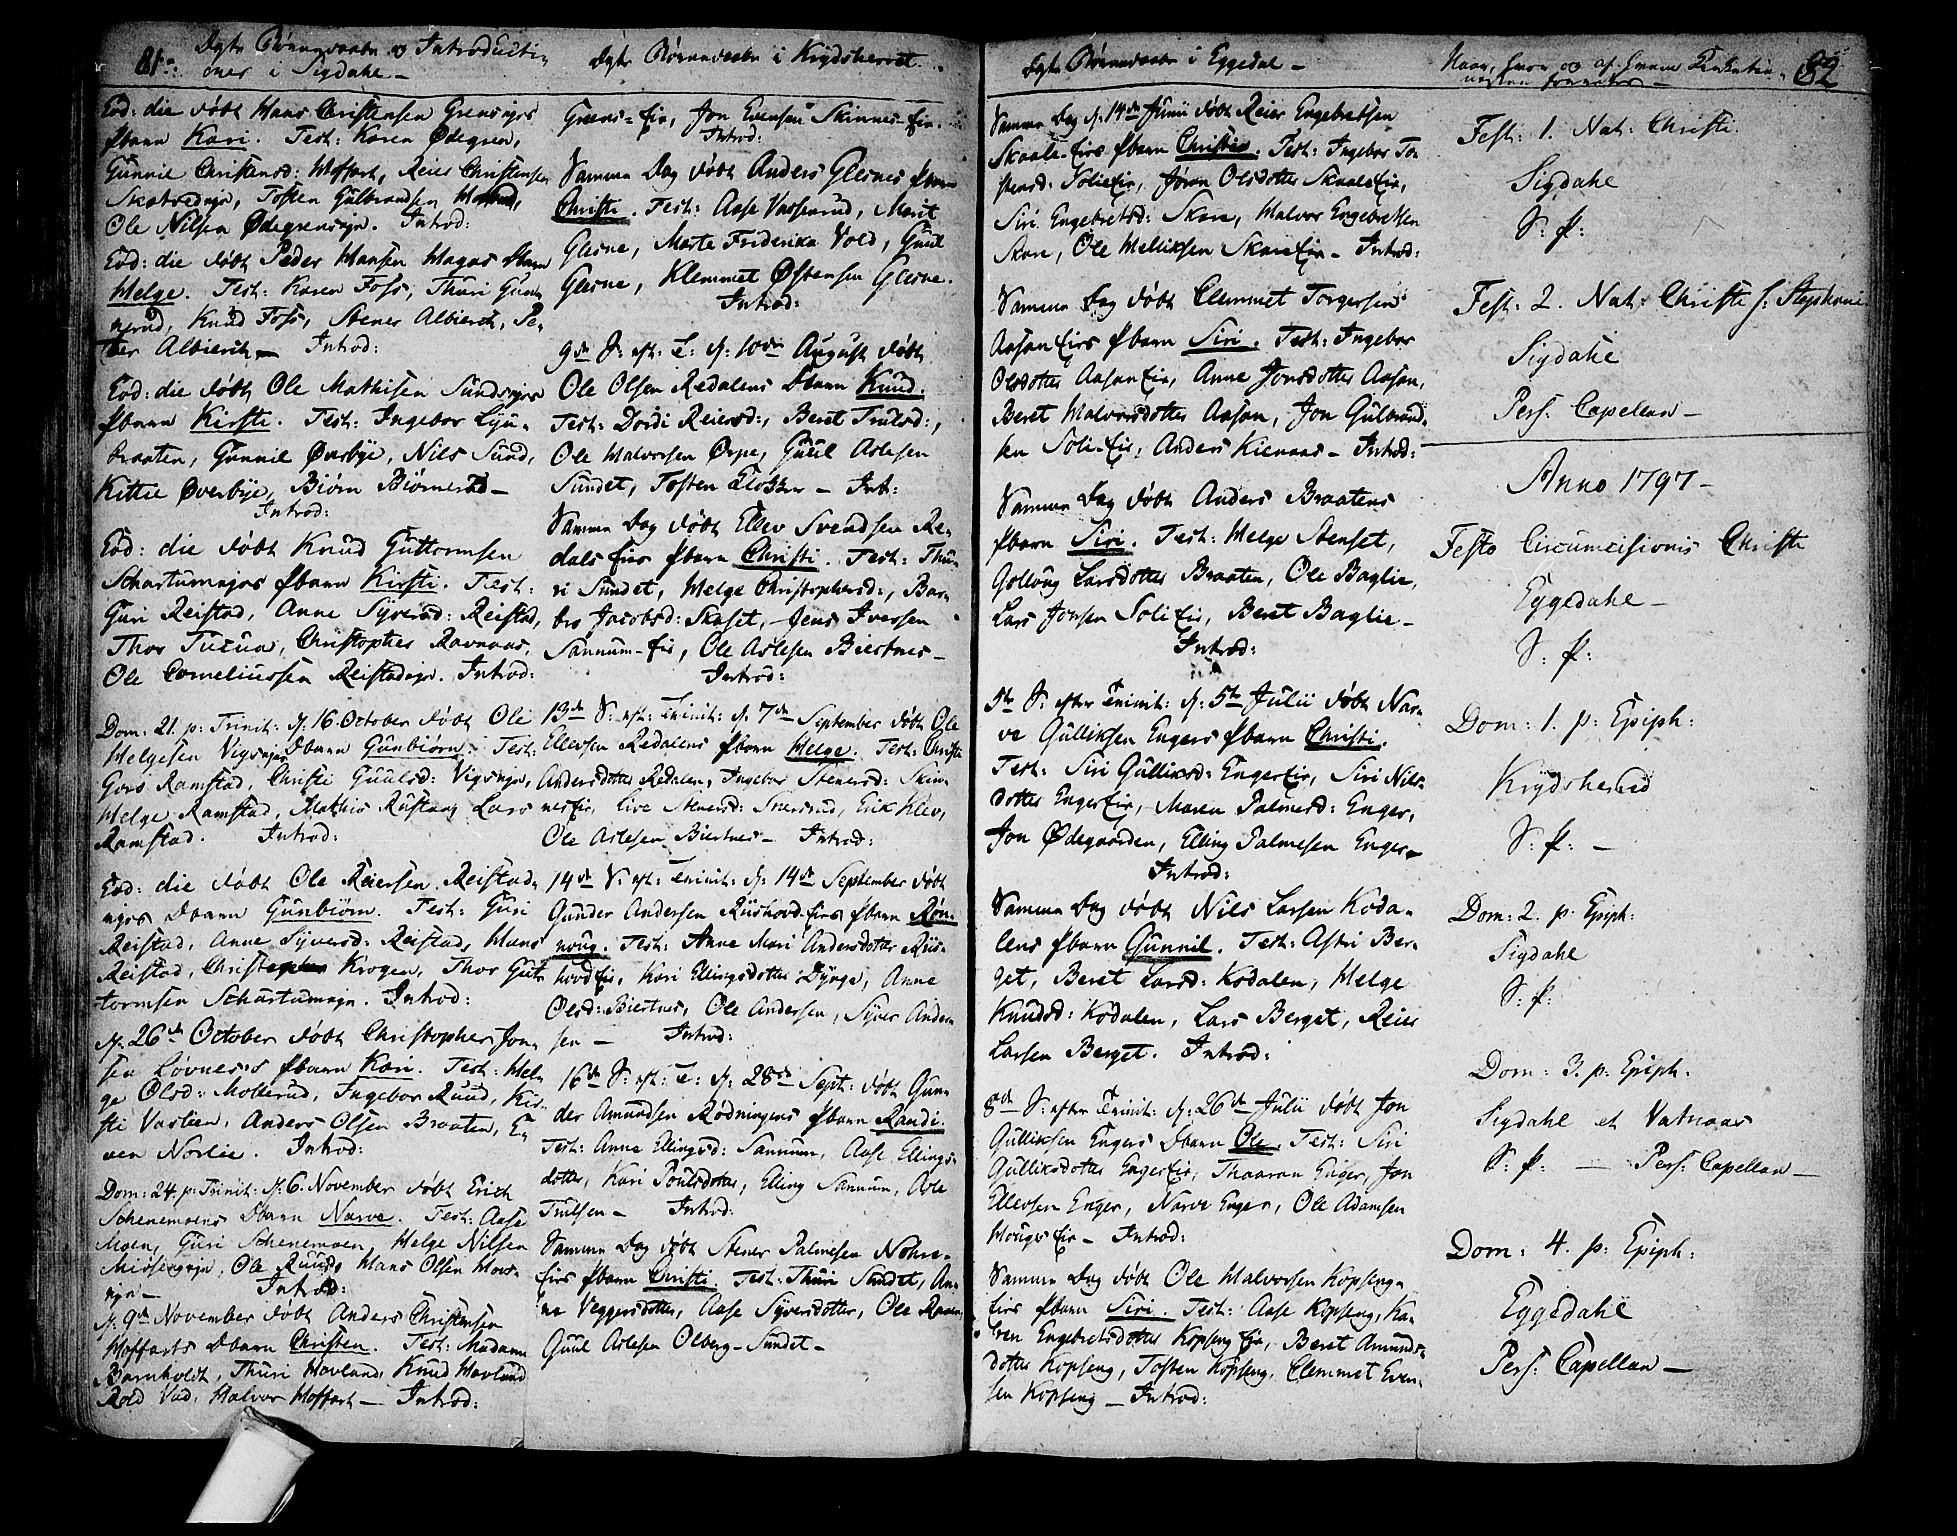 81.
Ægte Børnedaab og Introducti-
oner i Sigdahl –
Eod: die døbt Hans Christensen Grensiyrs
Pbarn Kari. Test: Karen Ødegren,
Gunnil Christensd: Hoffart, Reier Christensen
Tosten Gulbrandsen
Ole Nilsen Ødegrensejn. Introd:
Eod: die døbt Peder Hansen Hagas Pbarn
Helge. Test: Karen Foss, Thuri Gun-
nerud, Knud Foss, Stener Albierch, Pe-
der Albierch – Introd:
Eod: die døbt Ole Mathisen Sundsejes
Pbarn Kirsti. Test: Ingebor Lju-
braaten, Gunnil Øvrebye, Nils Sund,
Kittil Øverbye, Biørn Biørnerud –
Introd:
Eod: die døbt Knud Guttormsen
Schartumejes Pbarn Kirsti. Test:
Guri Reistad, Anne Syversd: Reistad,
Thor Tucua, Christopher Ravnaas,
Ole Corneliussen Reistadejn. Introd:
Dom: 21. p: Trinit: d: 16. October døbt Ole
Helgesen Vigsejes Dbarn Gunbiørn. Test:
Goro Ramstad, Christi Guulsd: Vigsejn,
Helge Ramstad, Mathis Rustang Lars
Ramstad. Introd:
Eod: die døbt Ole Reiersen Reistad-
ejes Dbarn Gunbiørn. Test: Guri
Reistad, Anne Syversd: Reistad, Hans
Reistad, Christopher Krogen, Thor Gut-
tormsen Schartumejn. Introd:
d: 26de October døbt Christopher Jon-
sen Lovnes's Pbarn Kari. Test: Hel-
ge Olsd: Mollerud, Ingebor Ruud, Kir-
sti Vastten, Anders Olsen Braaten, E-
ven Norlie. Introd:
Dom: 24. p: Trinit: d: 6. November døbt Erich
Schenemoens Dbarn Narve. Test: Aase
Moen, Guri Schenemoen, Helge Nilsen
Ole Ruud, Hans Olsen Hov-
ejn – Introd:
d: 9de November døbt Anders Christensen
Hoffarts Dbarn Christen. Test: Madame
Barnholdt, Thuri Hovland, Knud Hovland
Rold Vad, Halvor Hoffart – Introd:
Ægte Børnedaab i Krydsherret.
Grens-Eie, Jon Evensen Skinnes-Eie.
Introd:
Samme Dag døbt Anders Glesnes Pbarn
Christi. Test: Aase Vassenrud, Marit
Glesne, Marte Friderika Vold, Guul
Glesne, Klemmet Østensen Glesne.
Introd:
9de S: eft: T: d: 10de August døbt
Ole Olsen Redalens Dbarn Knud:
Test: Dordi Reiersd:, Beret Trulsd:,
Ole Halvorsen Ørpe, Guul Aslesen
Sundet, Tosten – Int:
Samme Dag døbt Ellev Svendsen Re-
dals Eies Pbarn Christi. Test: Thu-
ri Sundet, Helge Christophersd:, Bar-
bro Jacobsd: Skaset, Jens Iversen
Sannum-Eie, Ole Aslesen Biertnes –
Introd:
13de S: eft: Trinit: d: 7de September døbt Ole
Ellevsen Redalens Pbarn Helge. Test: Christi
Andersdotter Redalen, Ingebor Stenersd: Skin-
nes Eie, Live Stenersd: Skersrud, Erik Klev,
Ole Aslesen Biertnes – Introd:
14de S: eft: Trinit: d: 14de September døbt
Gunder Andersen Riishovd-Eies Pbarn Røn-
noug. Test: Anne Mari Andersdotter Riis-
hovd Eie, Kari Ellingsdotter Dynge, Anne
Olsd: Biertnes, Ole Andersen, Syver Ander-
sen – Introd:
16de S: eft: T: d: 28de Sept: døbt Gun-
der Amundsen Rødningens Pbarn Randi.
Test: Anne Ellingsd: Sannum, Aase Ellings-
dotter, Kari Poulsdotter, Elling Sannum, Asle
Trulsen – Introd:
Samme Dag døbt Stener Palmesen Nohre-
Eies Pbarn Christi. Test: Thuri Sundet, An-
ne Veggersdotter, Aase Syversdotter, Ole Raaen,
Guul Aslesen Olberg-Sundet –
Ægte Børnedaab i Eggedal –
Samme Dag d: 14de Junii døbt Reier Engebretsen
Skaale-Eies Pbarn Christie. Test: Ingebor To-
stensd: Solie Eie, Jøran Olsdotter Skaale Eie,
Siri Engebretsd: Skare, Halvor Engebretsen
Skare, Ole Helliksen Skare Eie – Introd:
Samme Dag døbt Clemmet Torgersen
Aasan Eies Pbarn Siri. Test: Ingebor
Olsdotter Aasan Eie, Anne Jonsdotter Aasan,
Beret Halvorsdotter Aasan, Jon Gulbrand-
sen Soli-Eie, Anders Kienaas – Introd:
Samme Dag døbt Anders Braatens
Pbarn Siri. Test: Helge Stenset,
Golloug Larsdotter Braaten, Ole Baglie,
Lars Jonsen Soli Eie, Beret Baglie –
Introd:
5te S: efter Trinit: d: 5te Julii døbt Nar-
ve Gulliksen Engers Pbarn Christi.
Test: Siri Gulliksd: Enger Eie, Siri Nils-
dotter Enger Eie, Maren Palmesd: Enger,
Jon Ødegaarden, Elling Palmesen Enger –
Introd:
Samme Dag døbt Nils Larsen Koda-
lens Pbarn Gunnil. Test: Astri Ber-
get, Beret Larsd: Kodalen, Helge
Knudsd: Kodalen, Lars Berget, Reier
Larsen Berget. Introd:
8de S: efter Trinit: d: 26de Julii døbt Jon
Gulliksen Engers Dbarn Ole. Test: Siri
Gulliksdotter Enger Eie, Thaaran Enger, Jon
Ellevsen Enger, Narve Enger, Ole Adamsen
Hougs Eie – Introd:
Samme Dag døbt Ole Halvorsen Kopseng-
Eies Pbarn Siri. Test: Aase Kopseng, Ka-
ren Engebretsdotter Kopseng Eie, Beret Amunds-
dotter Kopseng, Tosten Kopseng, Clemmet Even-
sen Kopseng – Introd:
Naar, hvor og af hvem Tieneste-
nesten forrettes –
82
Fest: 1. Nat: Christi.
Sigdahl
S: P:
Fest: 2. Nat: Christi s: Stephani
Sigdahl
Pers: Capellan –
Anno 1797 –
Festo Circumcisionis Christi
Eggedahl –
S: P:
Dom: 1. p: Epiph:
Krydsherred
S: P: –
Dom: 2. p: Epiph:
Sigdahl
S: P:
Dom: 3. p: Epiph:
Sigdahl et Vatnaas
S: P: – Pers: Capellan –
Dom: 4. p: Epiph:
Eggedahl
Pers: Capellan –